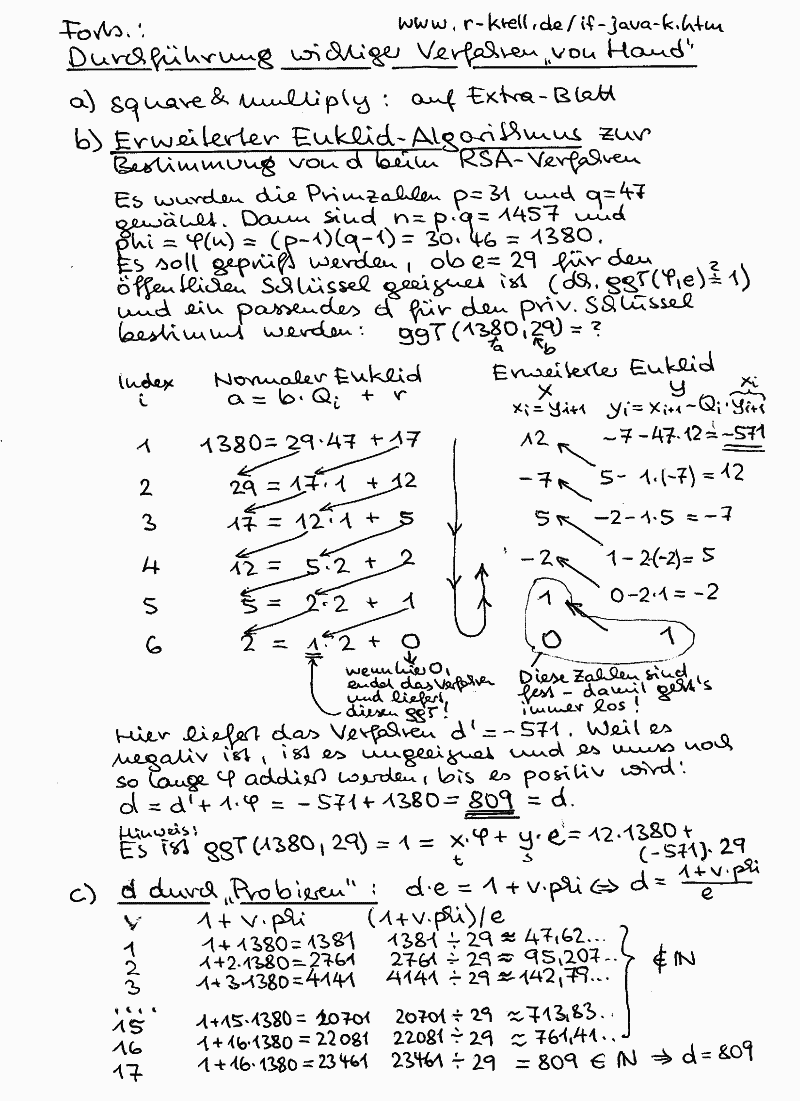 Forts.:
www.r-krell.de/if-java-k.htm
Durchführung wichtiger Verfahren „von Hand"
a) square & multiply : auf Extra-Blatt
b) Erweiterter Euklid-Algorithmus zur
Bestimmung von d beim RSA-Verfahren
Es wurden die Primzahlen p=31 und q=47
gewählt. Dann sind n=p·q=1457 und
phi = φ(n) = (p-1)(q-1) = 30·46 = 1380.
Es soll geprüft werden, ob e=29 für den
öffentlichen Schlüssel geeignet ist (dh. ggT(φ,e) ≟ 1)
und ein passendes d für den priv. Schlüssel
bestimmt werden: ggT(1380,29) = ?
a b
Index Normaler Euklid Erweiterter Euklid
i a = b·Qi + r x y xi
xi=yi+1 yi=xi+1-Qi·yi+1
1 1380=29·47+17 12 -7-47·12=-571
2 29=17·1 + 12 -7 5- 1·(-7) = 12
3 17 = 12·1 + 5 5 -2-1·5 = -7
4 12 = 5·2 + 2 -2 1-2·(-2)= 5
5 5 = 2·2 + 1 1 0-2·1 = -2
6 2 = 1·2 + 0 0 1
wenn hier 0,
endet das Verfahren
und liefert
diesen ggT!
Diese Zahlen sind
fest - damit geht's
immer los!
Hier liefert das Verfahren d'=-571. Weil es
negativ ist, ist es ungeeignet und es muss noch
so lange φ addiert werden, bis es positiv wird:
d = d'+ 1·φ = -571+1380= 809 = d.
Hinweis:
Es ist ggT(1380,29) = 1 = x·φ + y·e = 12·1380+
t s (-571)·29
c) d durch „Probieren" : d·e = 1+v·phi ⇔ d= (1+v·phi)/e
v 1+v·phi (1+v·phi)/e
1 1+1380=1381 1381÷29≈47,62...
2 1+2·1380=2761 2761÷29≈95,207..
3 1+3·1380=4141 4141÷29≈142,79...
∉ ℕ
....
15 1+15·1380= 20701 20701÷29 ≈713,83..
16 1+16·1380=22081 22081÷29 ≈761,41..
17 1+16·1380=23461 23461÷29 = 809 ∈ ℕ ⇒ d=809